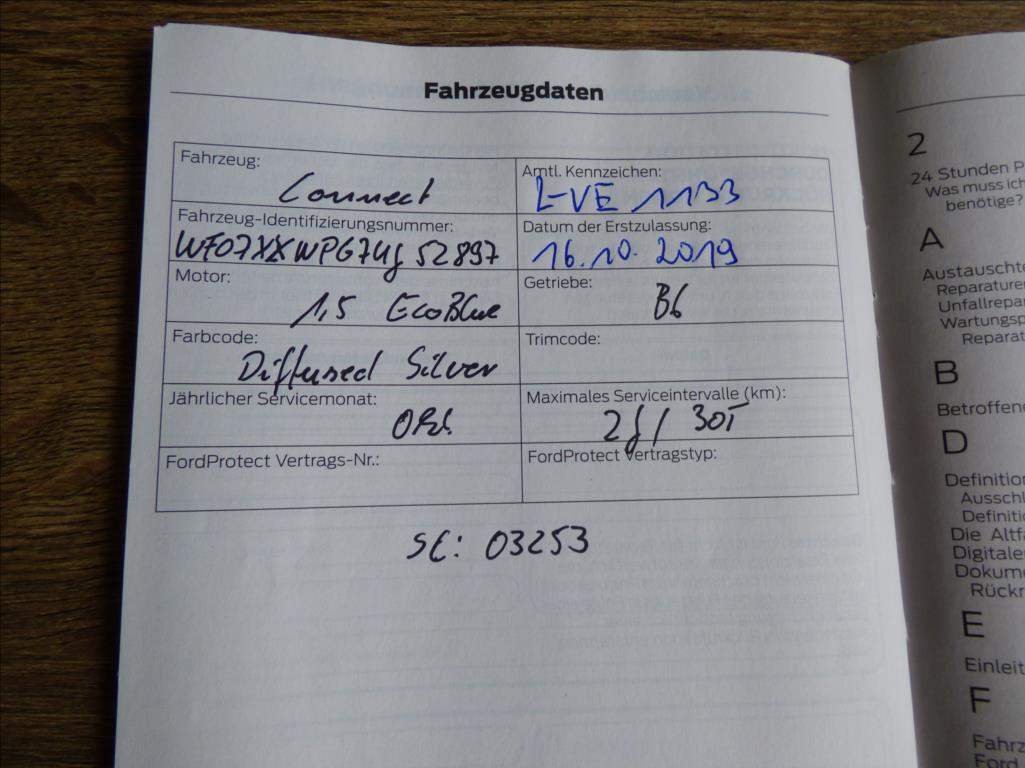 Fahrzeugdaten
Fahrzeug:
Connect
Amtl. Kennzeichen:
L-VE 1133
Fahrzeug-Identifizierungsnummer:
WF07XXWPG7
Datum der Erstzulassung:
16.10.2019
Motor:
1,5 EcoBlue
Getriebe:
B6
Farbcode:
Diffused Silver
Trimcode:
Jährlicher Servicemonat:
Okt.
Maximales Serviceintervalle (km):
2J / 30T
FordProtect Vertrags-Nr.:
FordProtect Vertragstyp:
SC: 03253
2
24 Stunden P
Was muss ich
benötige?
A
Austauschte
Reparaturen
Unfallrepa
Wartungsp
Reparat
B
Betroffene
D
Definition
Ausschl
Definiti
Die Altfa
Digitale
Dokume
Rückr
E
Einleit
F
Fahrz
Ford